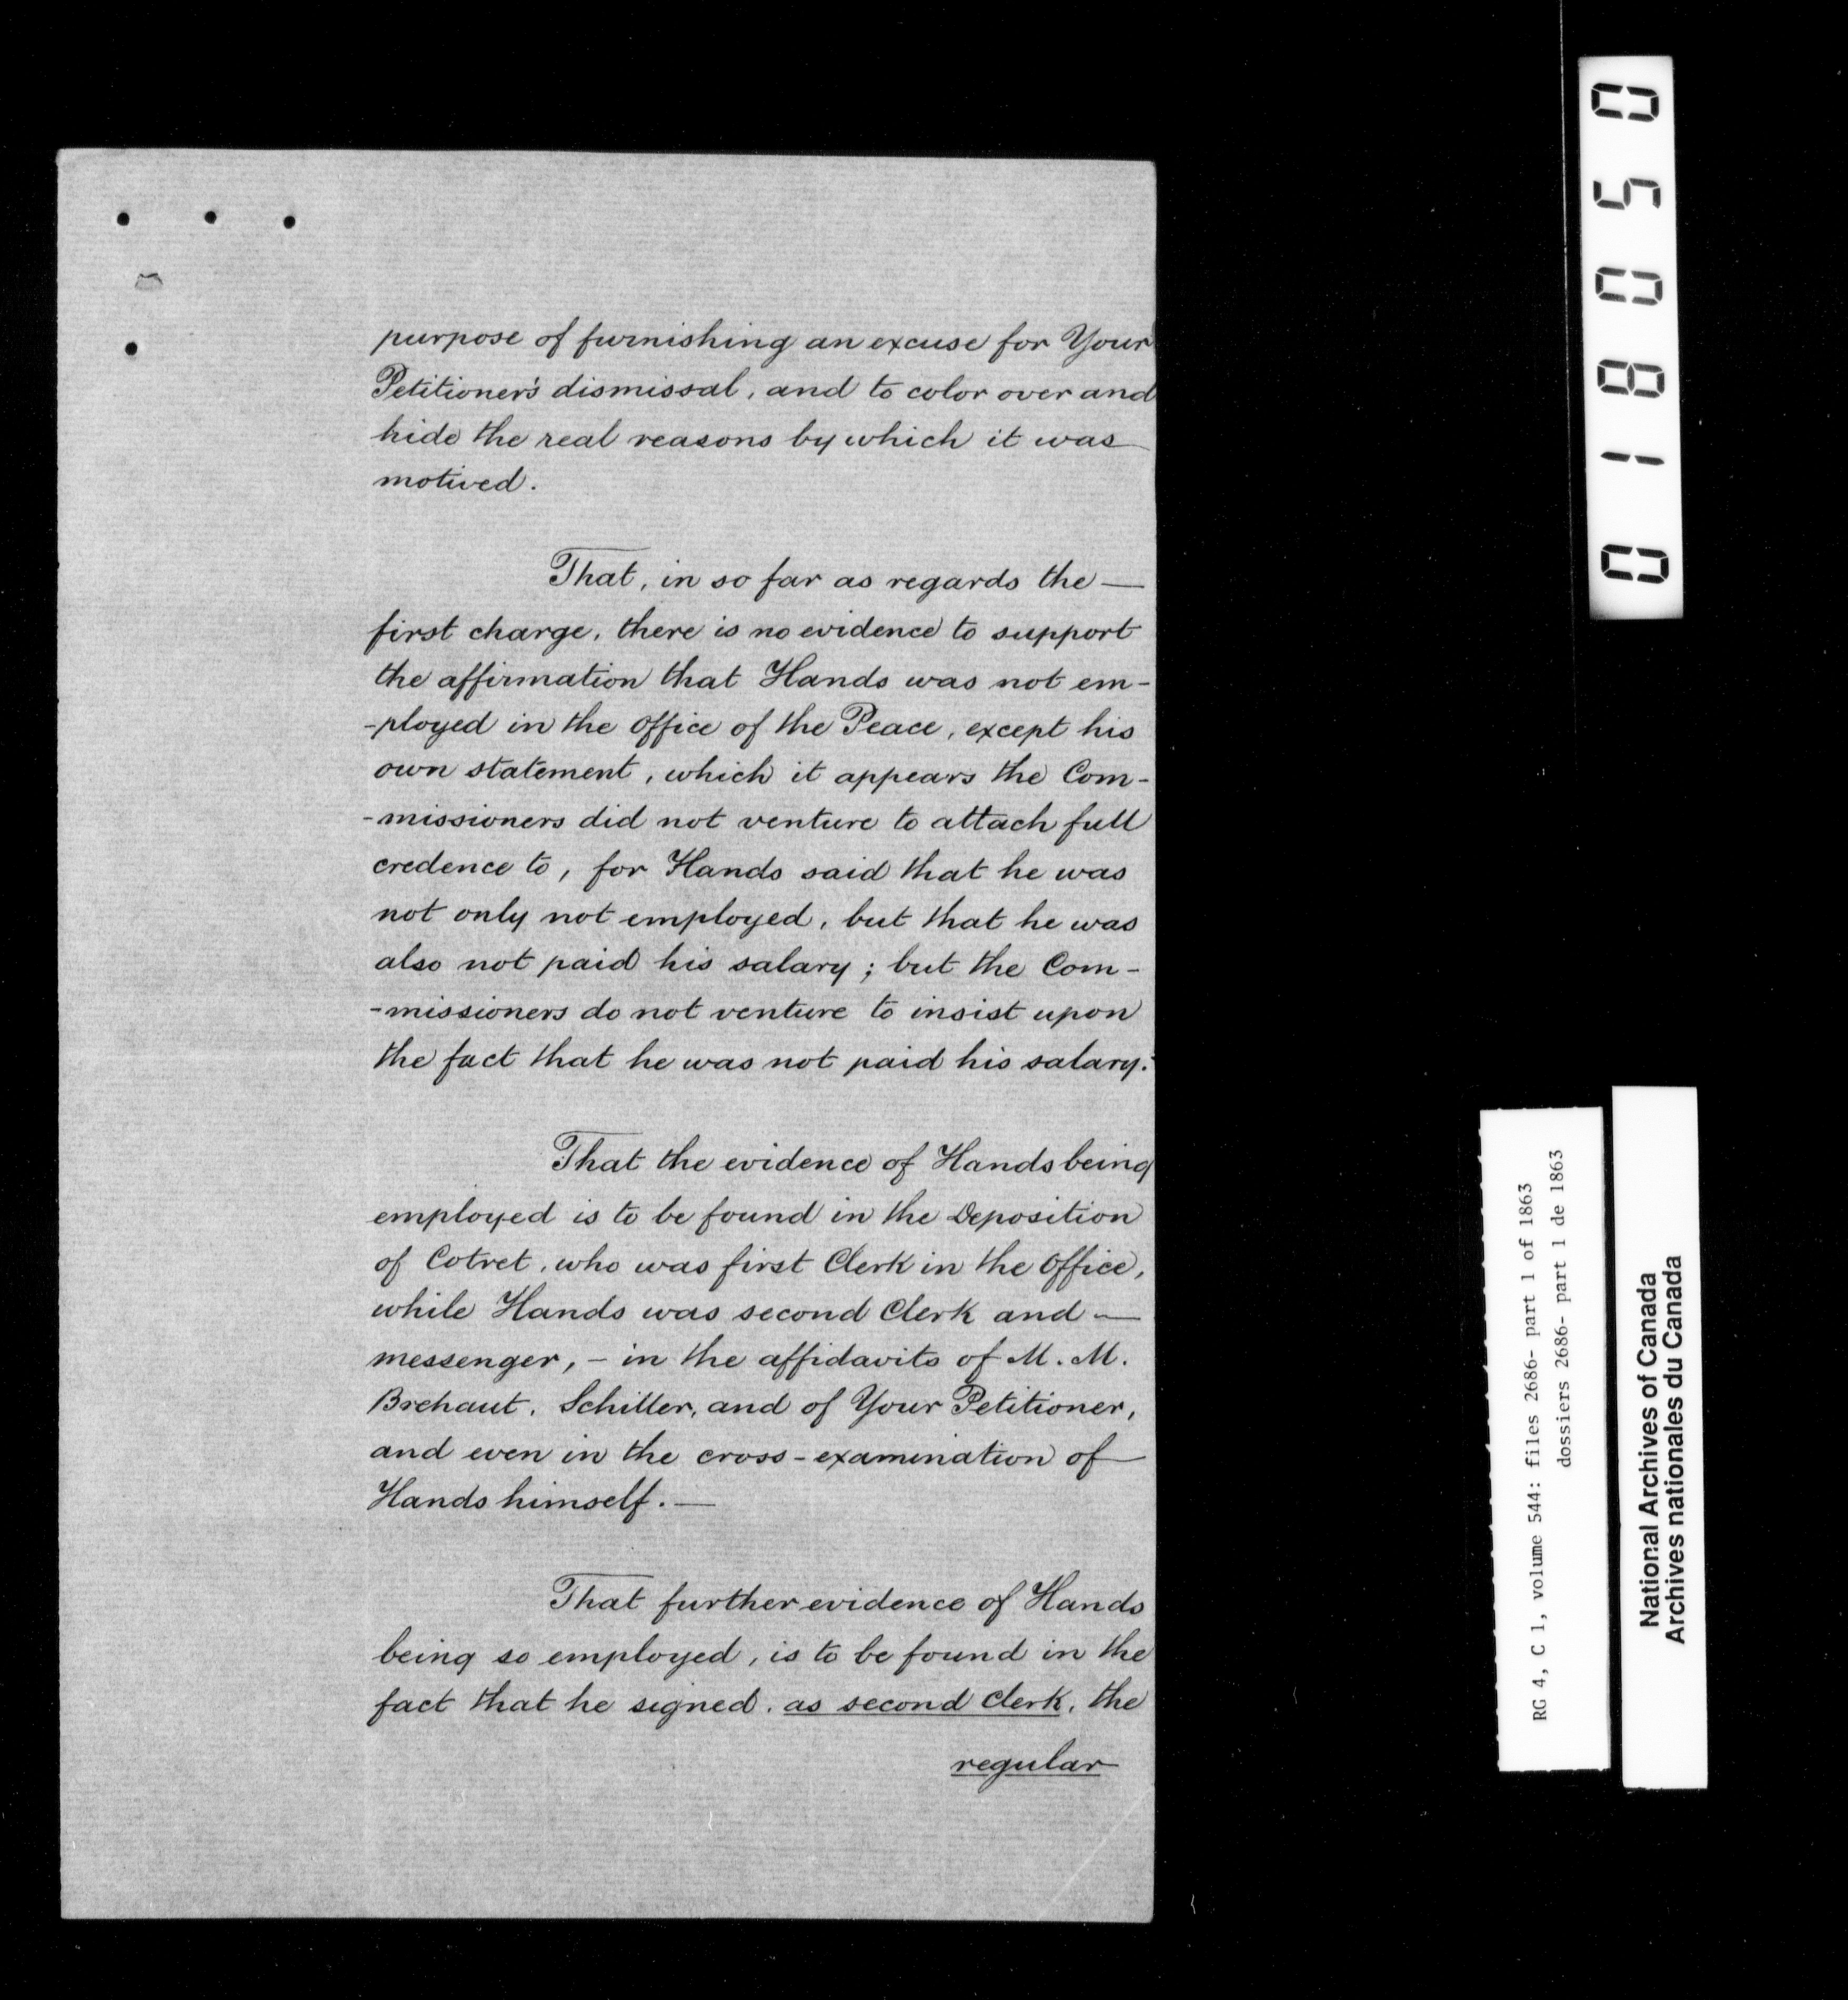 purpose of furnishing an excuse for Your
Petitioner's dismissal, and to color over and
hide the real reasons by which it was
motived.
That, in so far as regards the —
first charge, there is no evidence to support
the affirmation that Hands was not em-
-ployed in the office of the Peace, except his
own statement, which it appears the Com-
-missioners did not venture to attach full
credence to, for Hands said that he was
not only not employed, but that he was
also not paid his salary; but the Com-
-missioners do not venture to insist upon
the fact that he was not paid his salary.
That the evidence of Hands being
employed is to be found in the Deposition
of Cotret, who was first Clerk in the Office,
while Hands was second Clerk and —
messenger, – in the affidavits of M. M.
Brehaut, Schiller, and of Your Petitioner,
and even in the cross-examination of
Hands himself. —
That further evidence of Hands
being so employed, is to be found in the
fact that he signed, as second Clerk, the
regular
018050
RG 4, C 1, volume 544: files 2686- part 1 of 1863
dossiers 2686- part 1 de 1863
National Archives of Canada
Archives nationales du Canada